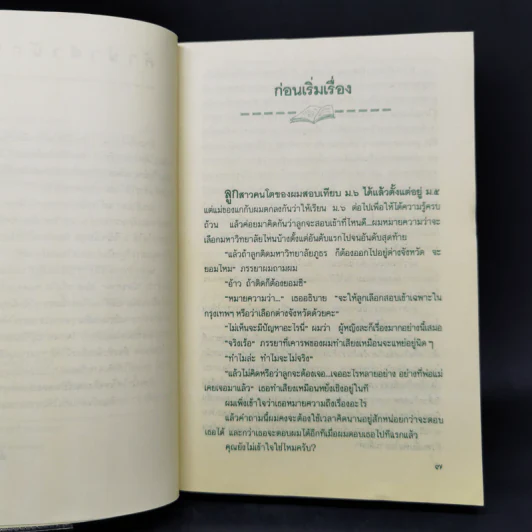 ก่อนเริ่มเรื่อง
ลูกสาวคนโตของผมสอบเทียบ ม.๖ ได้แล้วตั้งแต่อยู่ ม.๕
แต่แม่ของแกกับผมตกลงกันว่าให้เรียน ม.๖ ต่อไปเพื่อให้ได้ความรู้ครบ
ถ้วน แล้วค่อยมาคิดกันว่าลูกจะสอบเข้าที่ไหนดี...ผมหมายความว่าจะ
เลือกมหาวิทยาลัยไหนบ้างตั้งแต่อันดับแรกไปจนอันดับสุดท้าย
"แล้วถ้าลูกติดมหาวิทยาลัยภูธร ก็ต้องออกไปอยู่ต่างจังหวัด จะ
ยอมไหม" ภรรยาผมถามผม
"อ้าว ถ้าติดก็ต้องยอมซิ"
"หมายความว่า..." เธออธิบาย "จะให้ลูกเลือกสอบเข้าเฉพาะใน
กรุงเทพฯ หรือว่าเลือกต่างจังหวัดด้วยคะ"
"ไม่เห็นจะมีปัญหาอะไรนี่" ผมว่า ผู้หญิงละก็เรื่องมากอย่างนี้เสมอ
"จริงเร้อ" ภรรยาที่เคารพของผมทำเสียงเหมือนจะแหย่อยู่นิด ๆ
"ทำไมล่ะ ทำไมจะไม่จริง"
"แล้วไม่คิดหรือว่าลูกจะต้องเจอ...เจออะไรหลายอย่าง อย่างที่พ่อแม่
เคยเจอมาแล้ว" เธอทำเสียงเหมือนหยั่งเชิงอยู่ในที
ผมเพิ่งเข้าใจว่าเธอหมายความถึงเรื่องอะไร
แล้วคำถามนี้ผมคงจะต้องใช้เวลาคิดนานอยู่สักหน่อยกว่าจะตอบ
เธอได้ และกว่าเธอจะตอบผมได้อีกทีเมื่อผมตอบเธอไปทีแรกแล้ว
คุณยังไม่เข้าใจใช่ไหมครับ?
๗